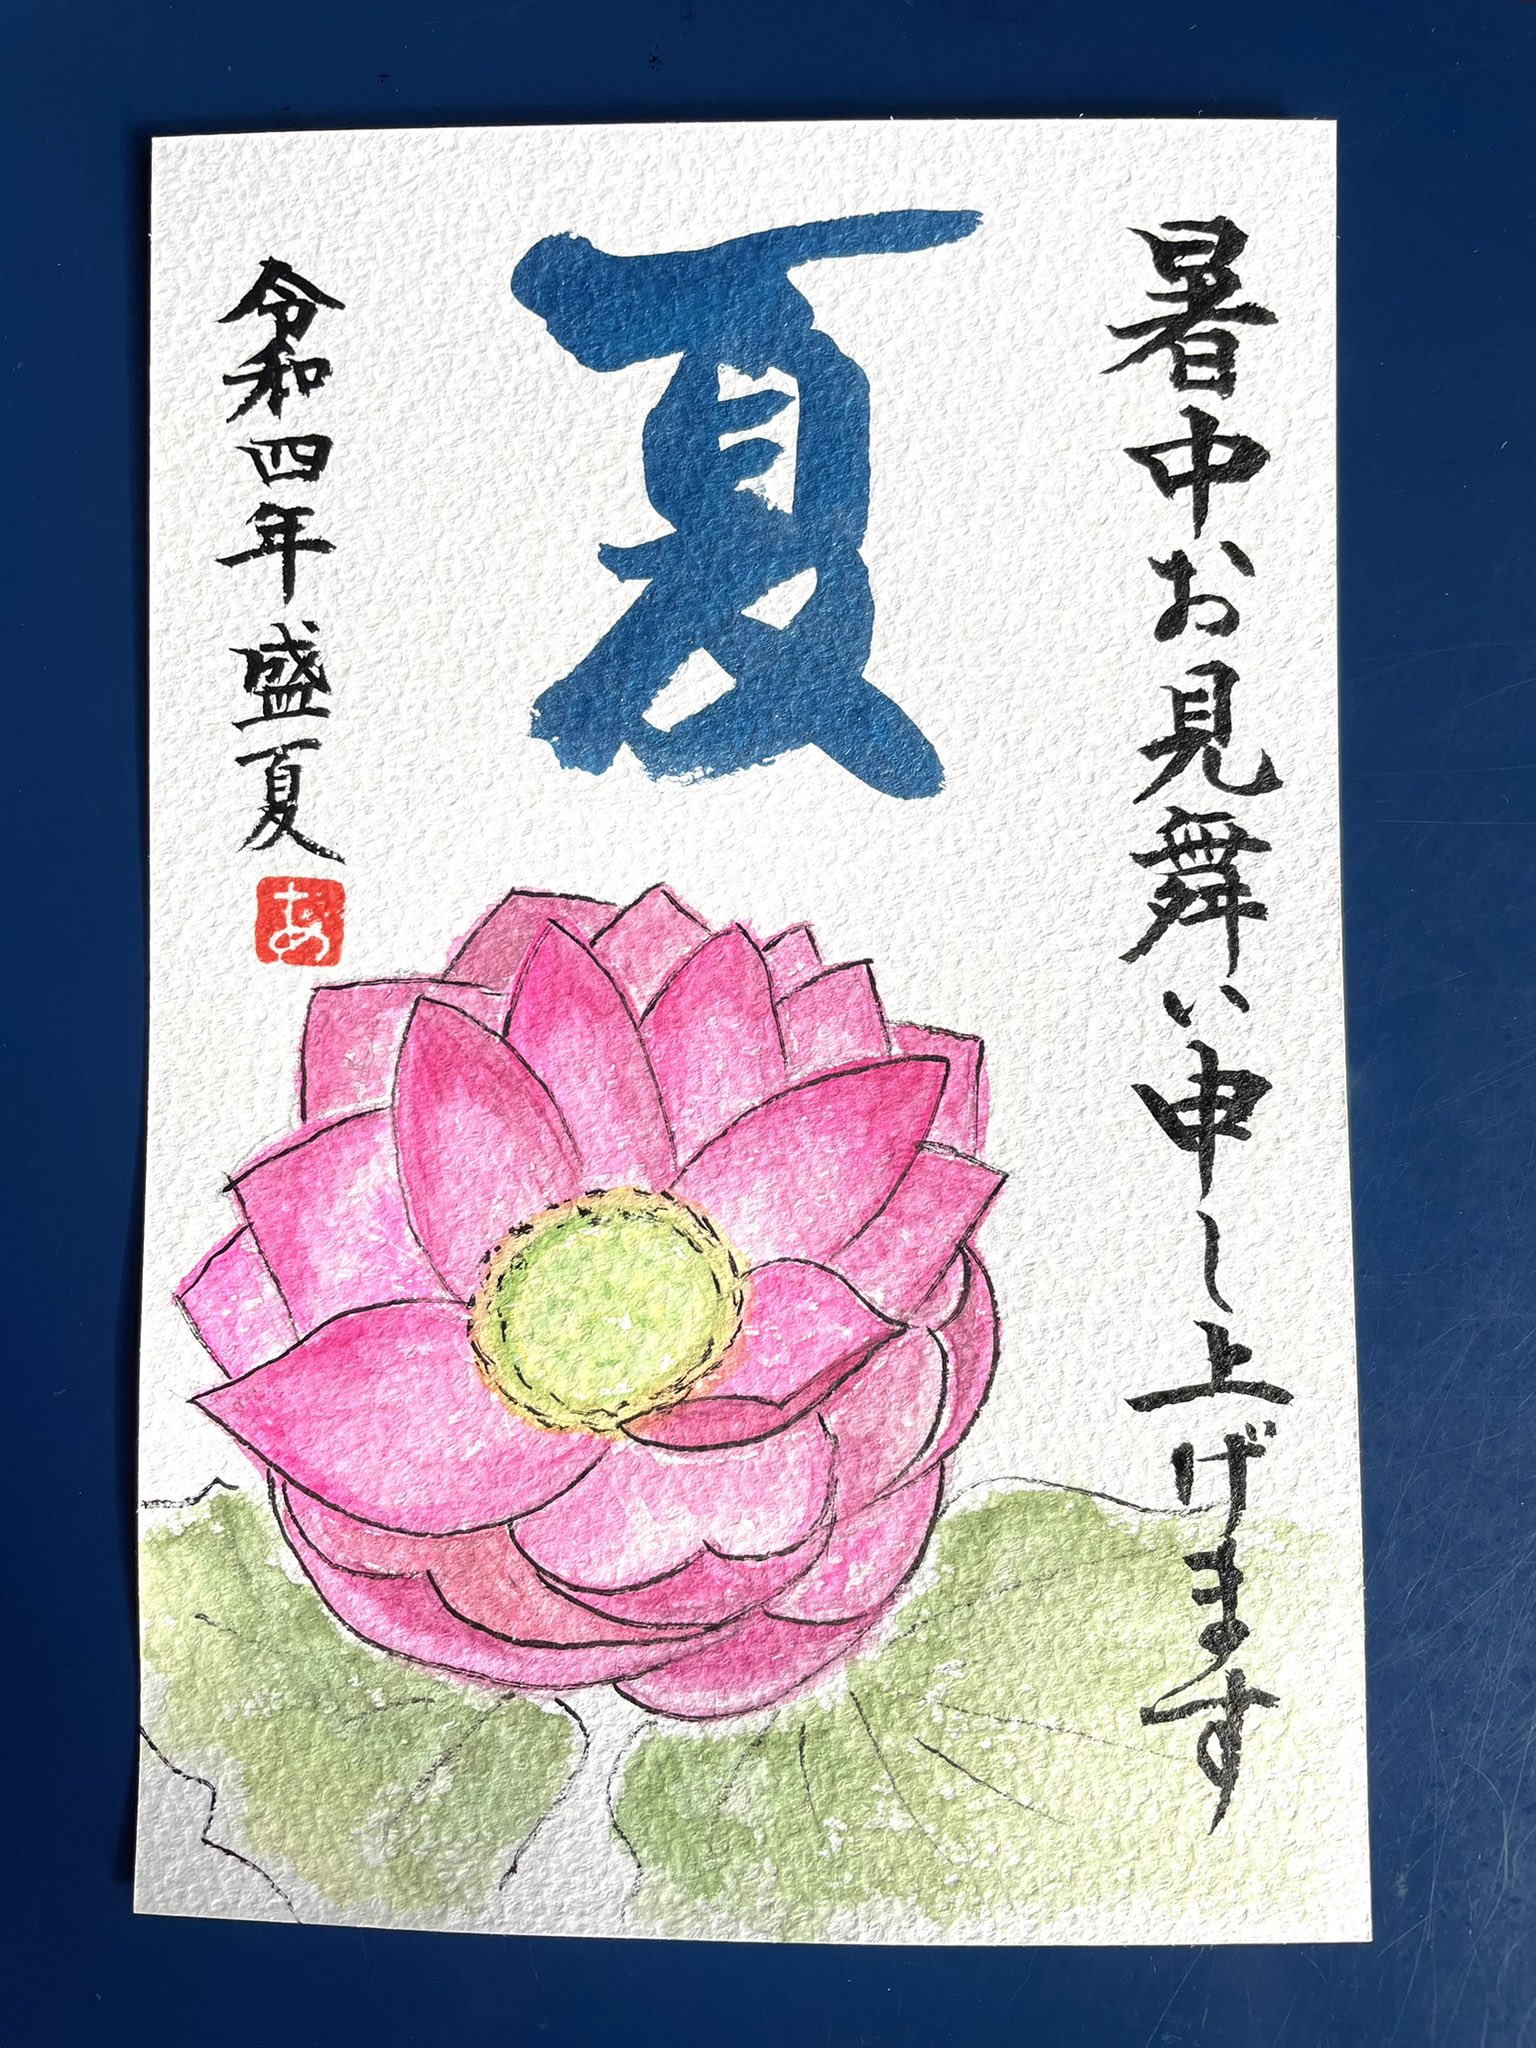 暑中お見舞い申し上げます
夏
令和四年盛夏
あ